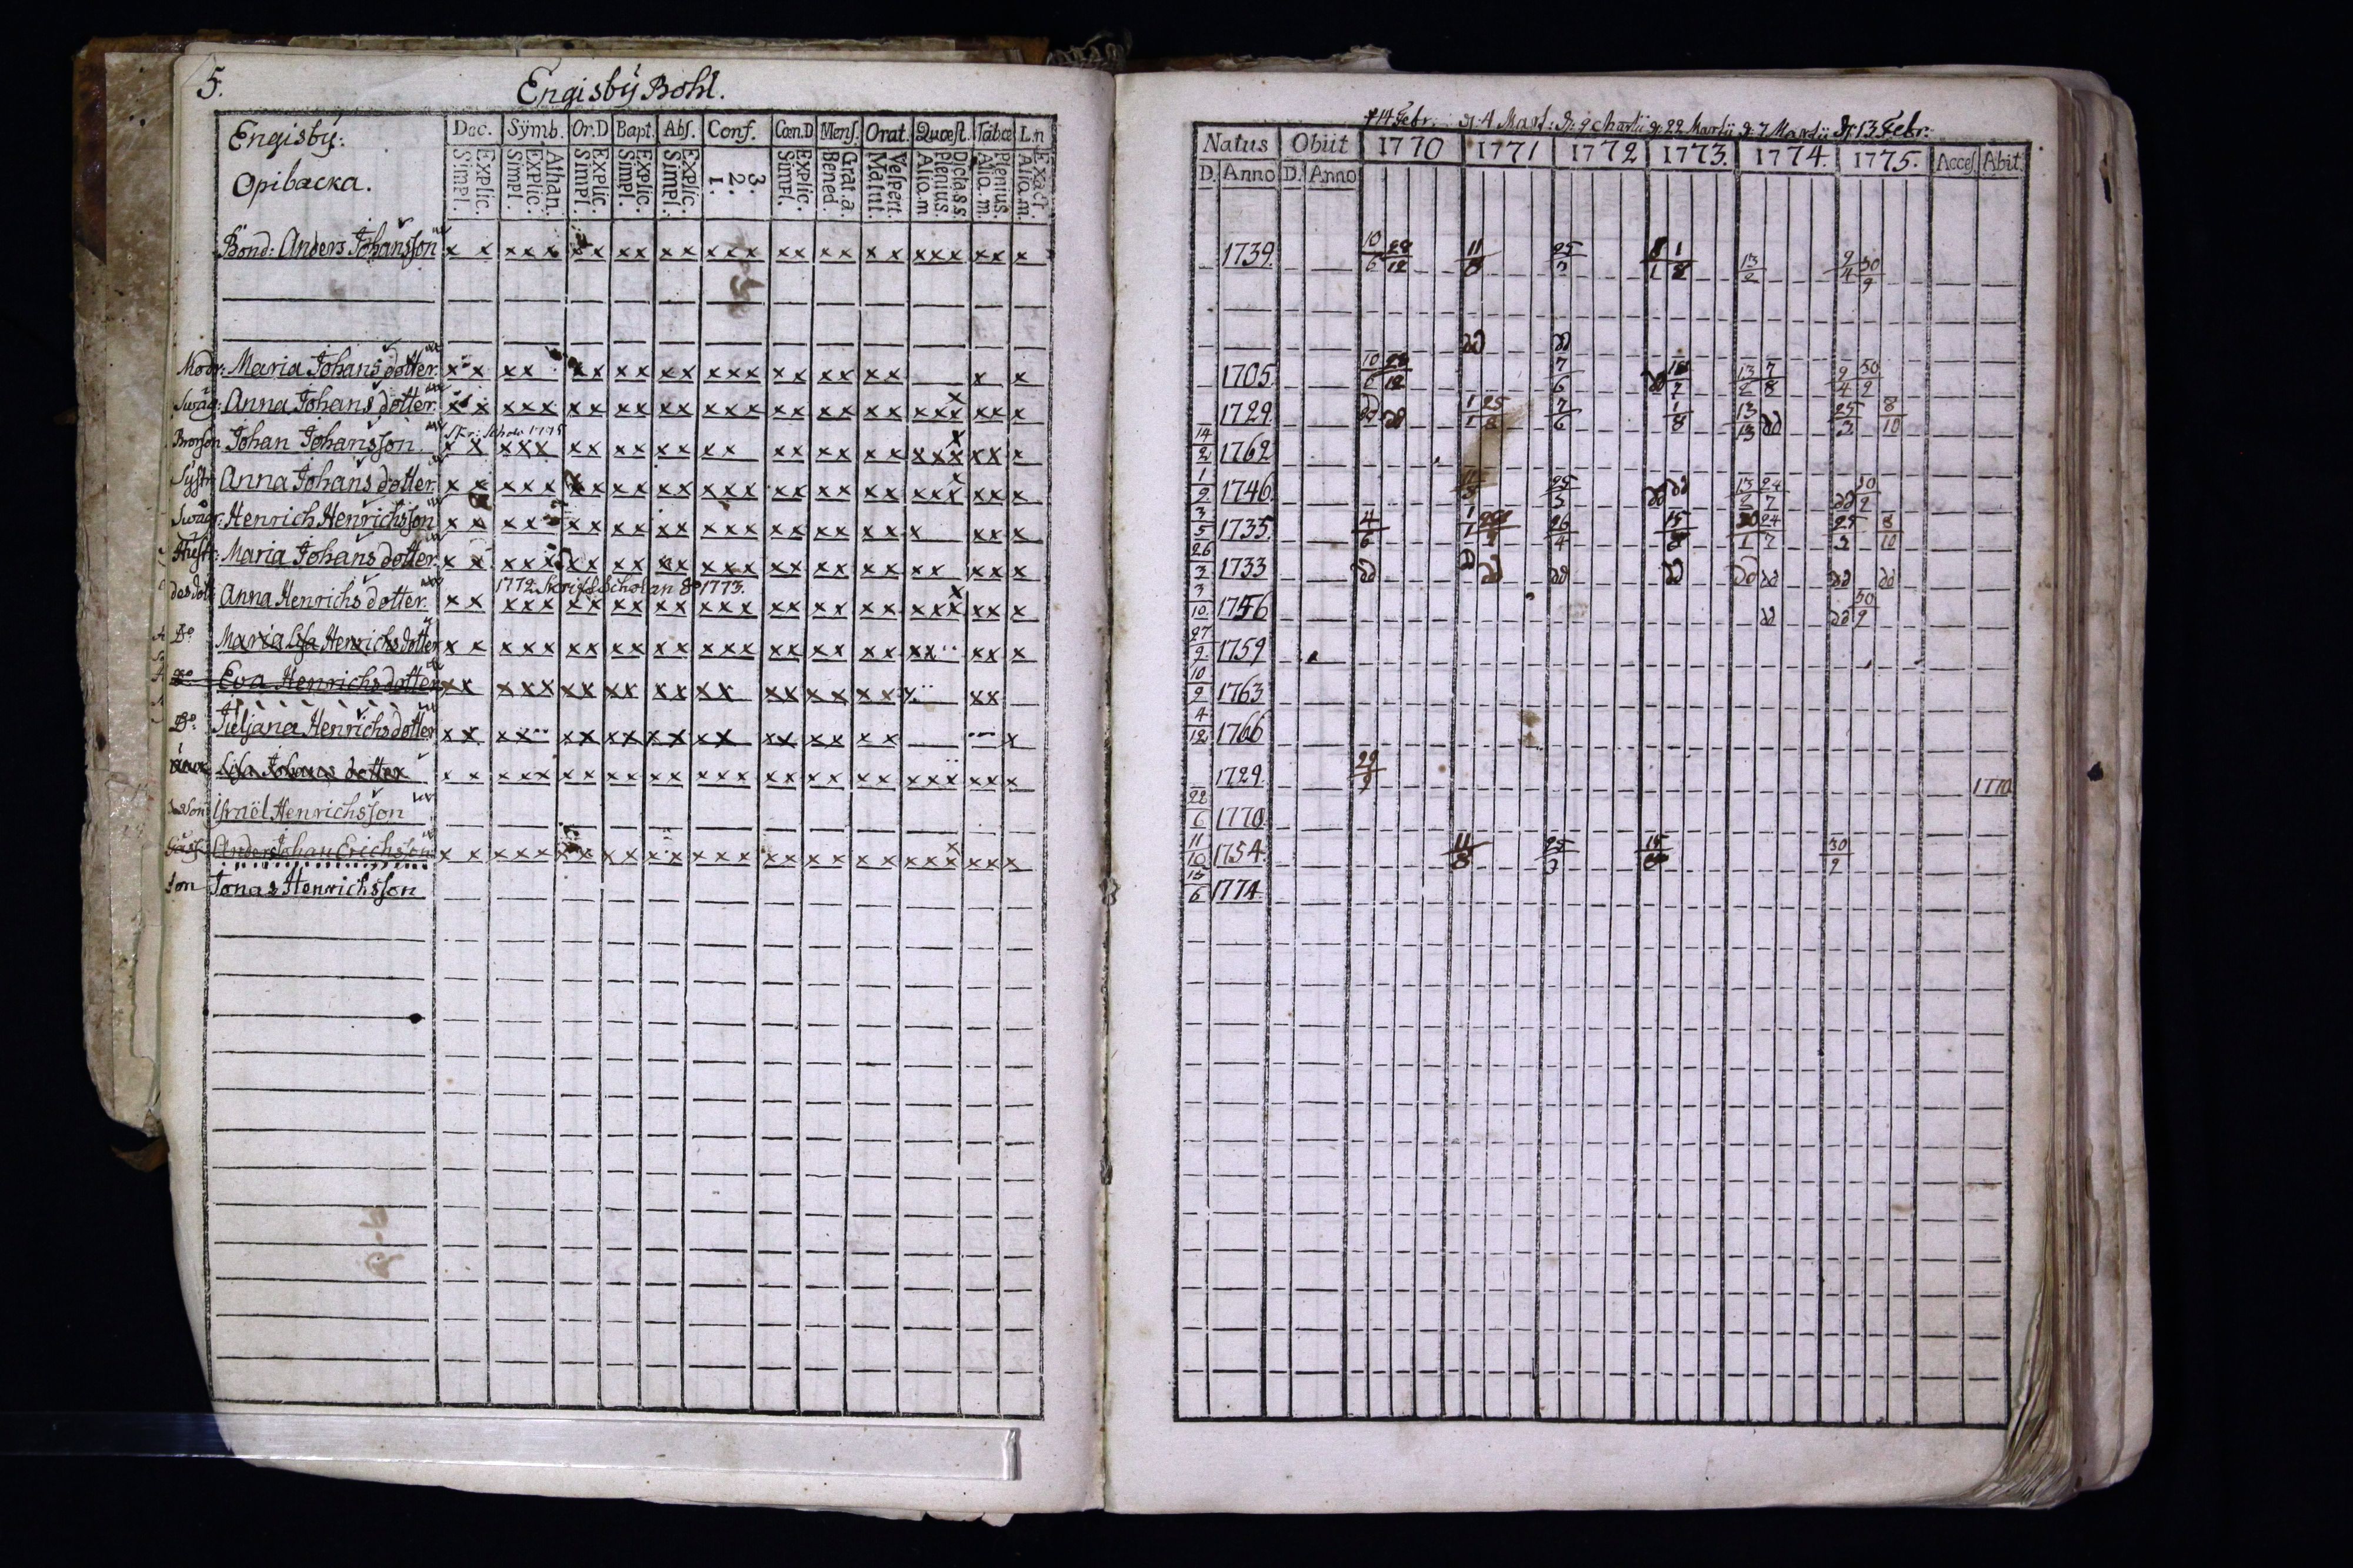 5.
Engisby Bohl.
Engisby:
Opibacka.
Dec. Symb. Or.D Bapt. Abs. Conf. Cœn.D Mens. Orat. Quæst. Tabœ L.n
Simpl. Explic. Simpl. Explic. Athan. Simpl. Explic. Simpl. Explic. Simpl. Explic. 1. 2. 3. Simpl. Explic. Bened. Grat.a. Matut. Vespert. Aliq.m plenius. Dicta.s.s Aliq.m. Plenius. Aliq.m. Exact.
Bond: Anders Johansson x x x x x x x x x x x x x x x x x x x x x x x x x x
Modr: Maria Johans dotter x x x x x x x x x x x x x x x x x x x x x
Swäg: Anna Johans dotter. x x x x x x x x x x x x x x x x x x x x x x x x x x x
1775
Brorson Johan Johansson x x x x x x x x x x x x x x x x x x x x x x x x x x
Systr Anna Johans dotter x x x x x x x x x x x x x x x x x x x x x x x x x x x
Swågr: Henrich Henrichsson x x x x x x x x x x x x x x x x x x x x x x x
Hustr: Maria Johans dotter x x x x x x x x x x x x x x x x x x x x x x x x x x
1772 Scholan 1773.
Anna Henrichs dotter x x x x x x x x x x x x x x x x x x x x x x x x x x x
Do Maria Lisa Henrichs dotter x x x x x x x x x x x x x x x x x x x x x x x x x
Do Eva Henrichsdotter x x x x x x x x x x x x x x x x x x x x x x
Do. Juljana Henrichsdotter x x x x x x x x x x x x x x x x x x x x
Lisa Johans dotter x x x x x x x x x x x x x x x x x x x x x x x x x x
Israël Henrichsson
Anders Johan Erichsson x x x x x x x x x x x x x x x x x x x x x x x x x x x
Son Jonas Henrichsson
14 Febr. d. 4 Mart: d: 9 Martii d. 22 Martii d: 7 Martii d. 13 Febr:
Natus Obiit 1770 1771 1772 1773. 1774. 1775. Acces. Abit.
D. Anno D. Anno
1739. 10/6 28/12 11/8 25/3 8/1 1/8 13/2 9/4 30/9
dd dd
1705. 10/6 28/12 7/6 13/2 7/8 9/4 30/9
1729. dd 1/1 25/8 7/6 1/8 13/13 dd 25/3 8/10
14/2 1762
1/9 1746. 25/3 dd dd 13/2 24/7 dd 30/9
3/5 1735. 4/6 26/4 15/8 24/7 25/3 8/10
26/3 1733 dd dd dd dd dd dd dd dd dd
3/10 1756 dd dd 30/9
27/9 1759
10/9 1763
4/12 1766
1729. 29/9 1770
22/6 1770.
11/10 1754. 11/8 25/3 15/8 30/9
15/6 1774.